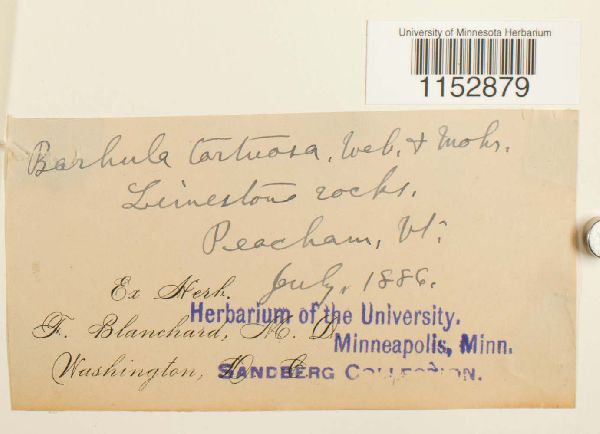 University of Minnesota Herbarium
1152879
Barbula tortuosa, Web. & Mohr.
Limestone rocks.
Peacham, Vt.
July, 1886.
Ex Herb.
F. Blanchard, M. D.
Washington, D. C.
Herbarium of the University.
Minneapolis, Minn.
SANDBERG COLLECTION.